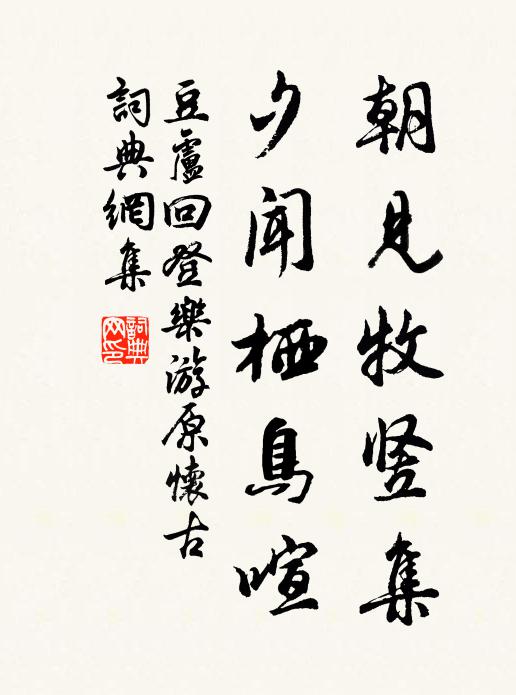 朝見牧竖集
夕闻栖鳥喧
豆盧回登樂游原懷古
詞典網集
詞典网印